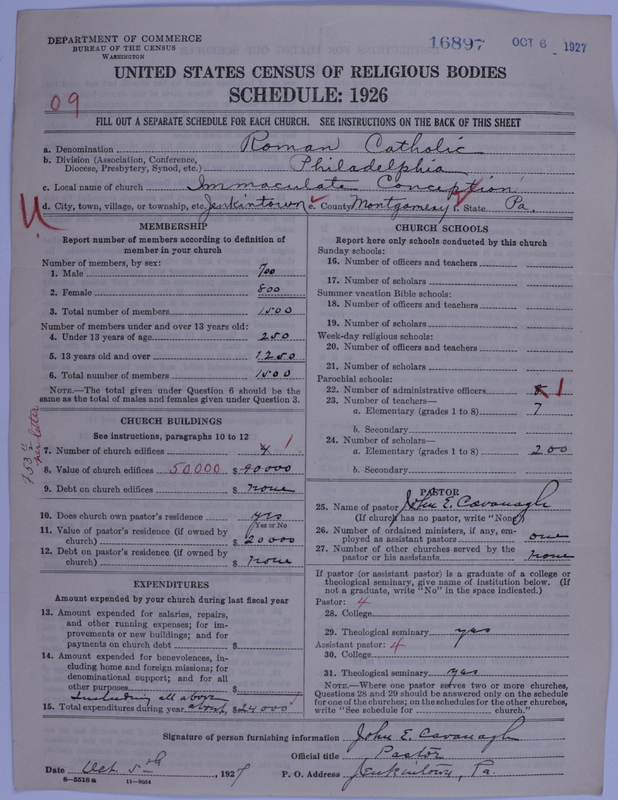 DEPARTMENT OF COMMERCE
BUREAU OF THE CENSUS
WASHINGTON
16897 OCT 6 1927
UNITED STATES CENSUS OF RELIGIOUS BODIES
SCHEDULE: 1926
09
FILL OUT A SEPARATE SCHEDULE FOR EACH CHURCH. SEE INSTRUCTIONS ON THE BACK OF THIS SHEET
a. Denomination Roman Catholic
b. Division (Association, Conference, Diocese, Presbytery, Synod, etc.) Philadelphia
c. Local name of church Immaculate Conception
d. City, town, village, or township, etc. Jenkintown e. County Montgomery f. State Pa.
MEMBERSHIP
Report number of members according to definition of
member in your church
Number of members, by sex:
1. Male 700
2. Female 800
3. Total number of members 1500
Number of members under and over 13 years old:
4. Under 13 years of age 250
5. 13 years old and over 1250
6. Total number of members 1500
NOTE.—The total given under Question 6 should be the
same as the total of males and females given under Question 3.
CHURCH BUILDINGS
See instructions, paragraphs 10 to 12
7. Number of church edifices 4 1
8. Value of church edifices 50000 $ 90000
9. Debt on church edifices $ none
per letter
10. Does church own pastor's residence yes
(Yes or No)
11. Value of pastor's residence (if owned by
church) $ 20000
12. Debt on pastor's residence (if owned by
church) $ none
EXPENDITURES
Amount expended by your church during last fiscal year
13. Amount expended for salaries, repairs,
and other running expenses; for im-
provements or new buildings; and for
payments on church debt $
14. Amount expended for benevolences, in-
cluding home and foreign missions; for
denominational support; and for all
other purposes $
Including all above
15. Total expenditures during year about $ 24000
CHURCH SCHOOLS
Report here only schools conducted by this church
Sunday schools:
16. Number of officers and teachers
17. Number of scholars
Summer vacation Bible schools:
18. Number of officers and teachers
19. Number of scholars
Week-day religious schools:
20. Number of officers and teachers
21. Number of scholars
Parochial schools:
22. Number of administrative officers 1
23. Number of teachers—
a. Elementary (grades 1 to 8) 7
b. Secondary
24. Number of scholars—
a. Elementary (grades 1 to 8) 200
b. Secondary
PASTOR
25. Name of pastor John E. Cavanagh
(If church has no pastor, write "None")
26. Number of ordained ministers, if any, em-
ployed as assistant pastors one
27. Number of other churches served by the
pastor or his assistants none
If pastor (or assistant pastor) is a graduate of a college or
theological seminary, give name of institution below. (If
not a graduate, write "No" in the space indicated.)
Pastor: 4
28. College
29. Theological seminary yes
Assistant pastor: 4
30. College
31. Theological seminary yes
NOTE.—Where one pastor serves two or more churches,
Questions 28 and 29 should be answered only on the schedule
for one of the churches; on the schedules for the other churches,
write "See schedule for church."
Signature of person furnishing information John E. Cavanagh
Official title Pastor
Date Oct. 5th, 1927 P. O. Address Jenkintown, Pa.
8-5518a 11-9034